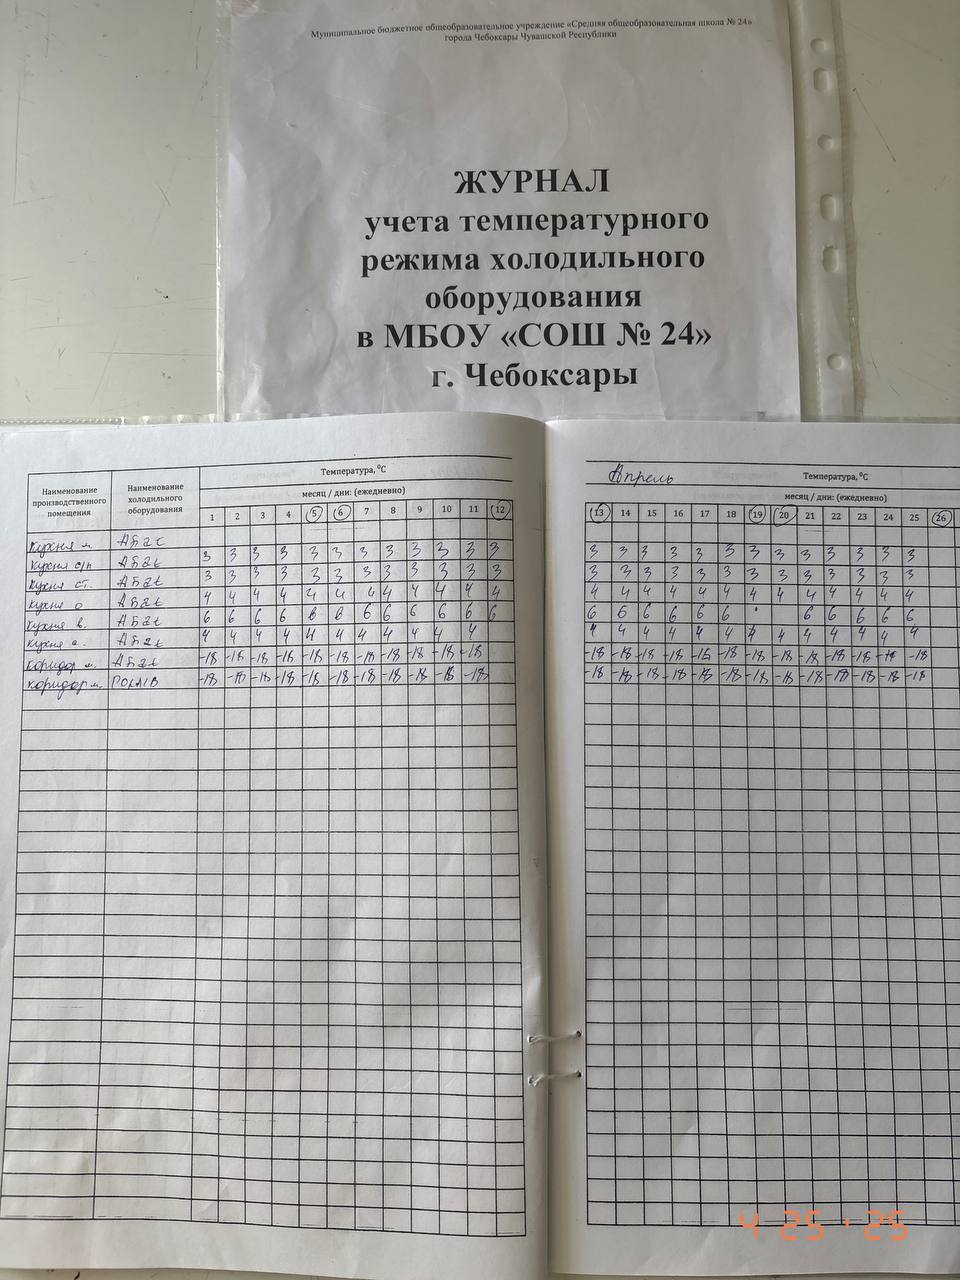 Муниципальное бюджетное общеобразовательное учреждение «Средняя общеобразовательная школа № 24»
города Чебоксары Чувашской Республики
ЖУРНАЛ
учета температурного
режима холодильного
оборудования
в МБОУ «СОШ № 24»
г. Чебоксары
Наименование производственного помещения
Наименование холодильного оборудования
Температура, ⁰С
месяц / дни: (ежедневно)
1 2 3 4 5 6 7 8 9 10 11 12
Кухня м.
Кухня с/п 3 3 3 3 3 3 3 3 3 3 3 3
Кухня ст. 3 3 3 3 3 3 3 3 3 3 3 3
Кухня о 4 4 4 4 4 4 4 4 4 4 4 4
Кухня в. 6 6 6 6 6 6 6 6 6 6 6 6
Кухня 4 4 4 4 4 4 4 4 4 4 4
Коридор м. -18 -18 -18 -18 -18 -18 -18 -18 -18 -18 -18
Коридор м. -18 -18 -18 -18 -18 -18 -18 -18 -18 -18 -18
Апрель
Температура, ⁰С
месяц / дни: (ежедневно)
13 14 15 16 17 18 19 20 21 22 23 24 25 26
3 3 3 3 3 3 3 3 3 3 3 3 3
3 3 3 3 3 3 3 3 3 3 3 3 3
4 4 4 4 4 4 4 4 4 4 4 4 4
6 6 6 6 6 6 6 6 6 6 6
4 4 4 4 4 4 4 4 4 4 4 4 4
-18 -18 -18 -18 -18 -18 -18 -18 -18 -18 -18 -18 -18
-18 -18 -18 -18 -18 -18 -18 -18 -18 -18 -18 -18 -18
4 25 '25